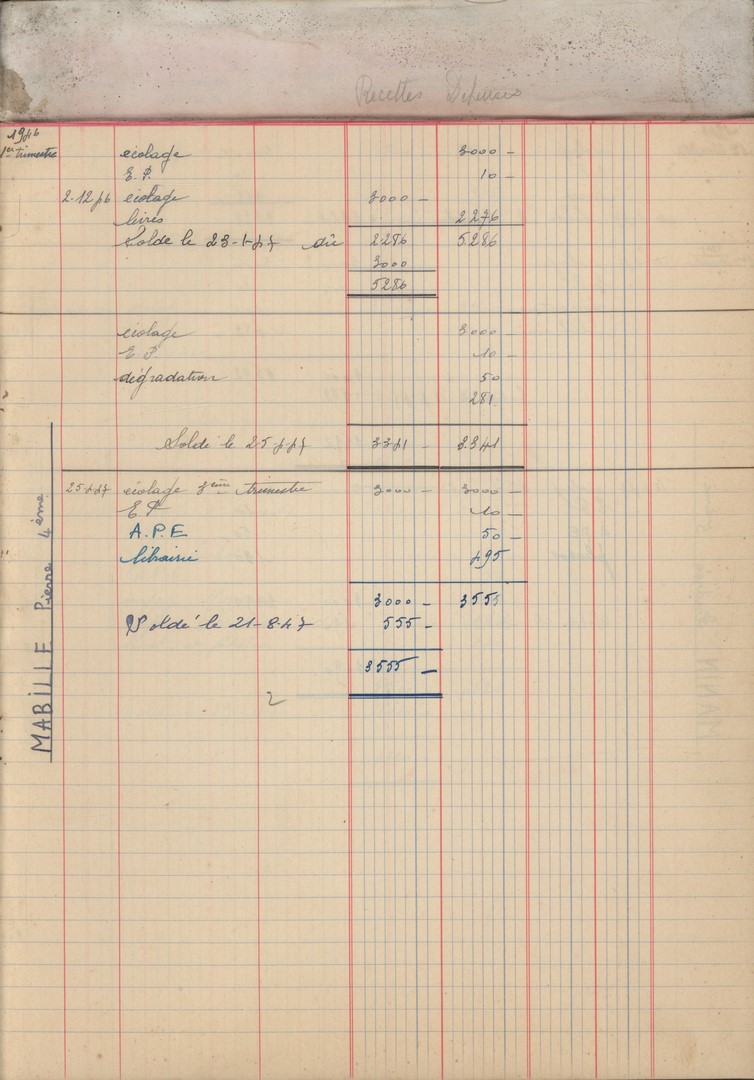 Recettes Dépenses
1946
1er trimestre
écolage 3000 -
E. P. 10 -
2-12-46 écolage 3000 -
livres 2276
Solde le 23-1-47 dû 2286 5286
3000
5286
écolage 3000
E. P. 10 -
dégradation 50
281
Solde le 25-4-47 3341 - 3341
25-4-47 écolage 3ème trimestre 3000 - 3000 -
E P 10 -
A.P.E 50 -
librairie 495
3000 - 3555
Soldé le 21-8-47 555 -
3555 -
2
MABILLE Pierre 4ème